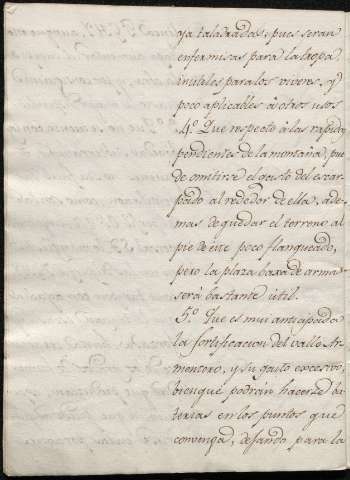 ya taladradas, pues seran
enfermisas para la tropa
inutiles para los viveres, y
poco aplicables à otros usos
4.º Que respecto à las rapidas
pendientes de la montaña, pue
de omitirse el gasto del escar
pado al rededor de ella, ade
mas de quedar el terreno al
pie de este poco flanqueado,
pero la plaza baxa de armas
será bastante util.
5.º Que es muy anticipada
la fortificacion del valle Ar
mentero, y su gasto excesivo,
bienque podrán hacerse ba
terias en los puntos que
convenga, dejando para la